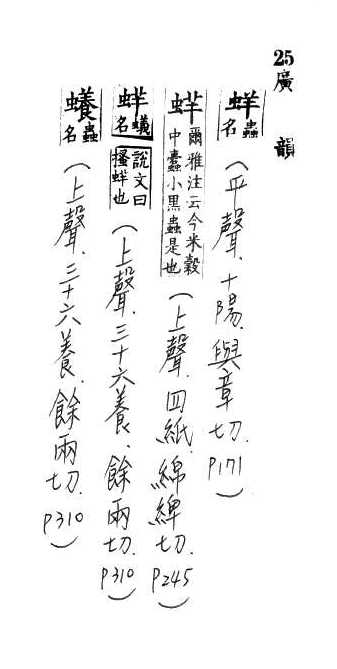 25廣韻
蛘 蟲名 (平聲.十陽.與章切. P171)
蝆 爾雅注云今米穀中蠹小黑蟲是也 (上聲.四紙.綿綼切. P245)
蛘 蟻名 說文曰搔蛘也 (上聲.三十六養.餘兩切. P310)
蟲名 (上聲.三十六養.餘兩切. P310)